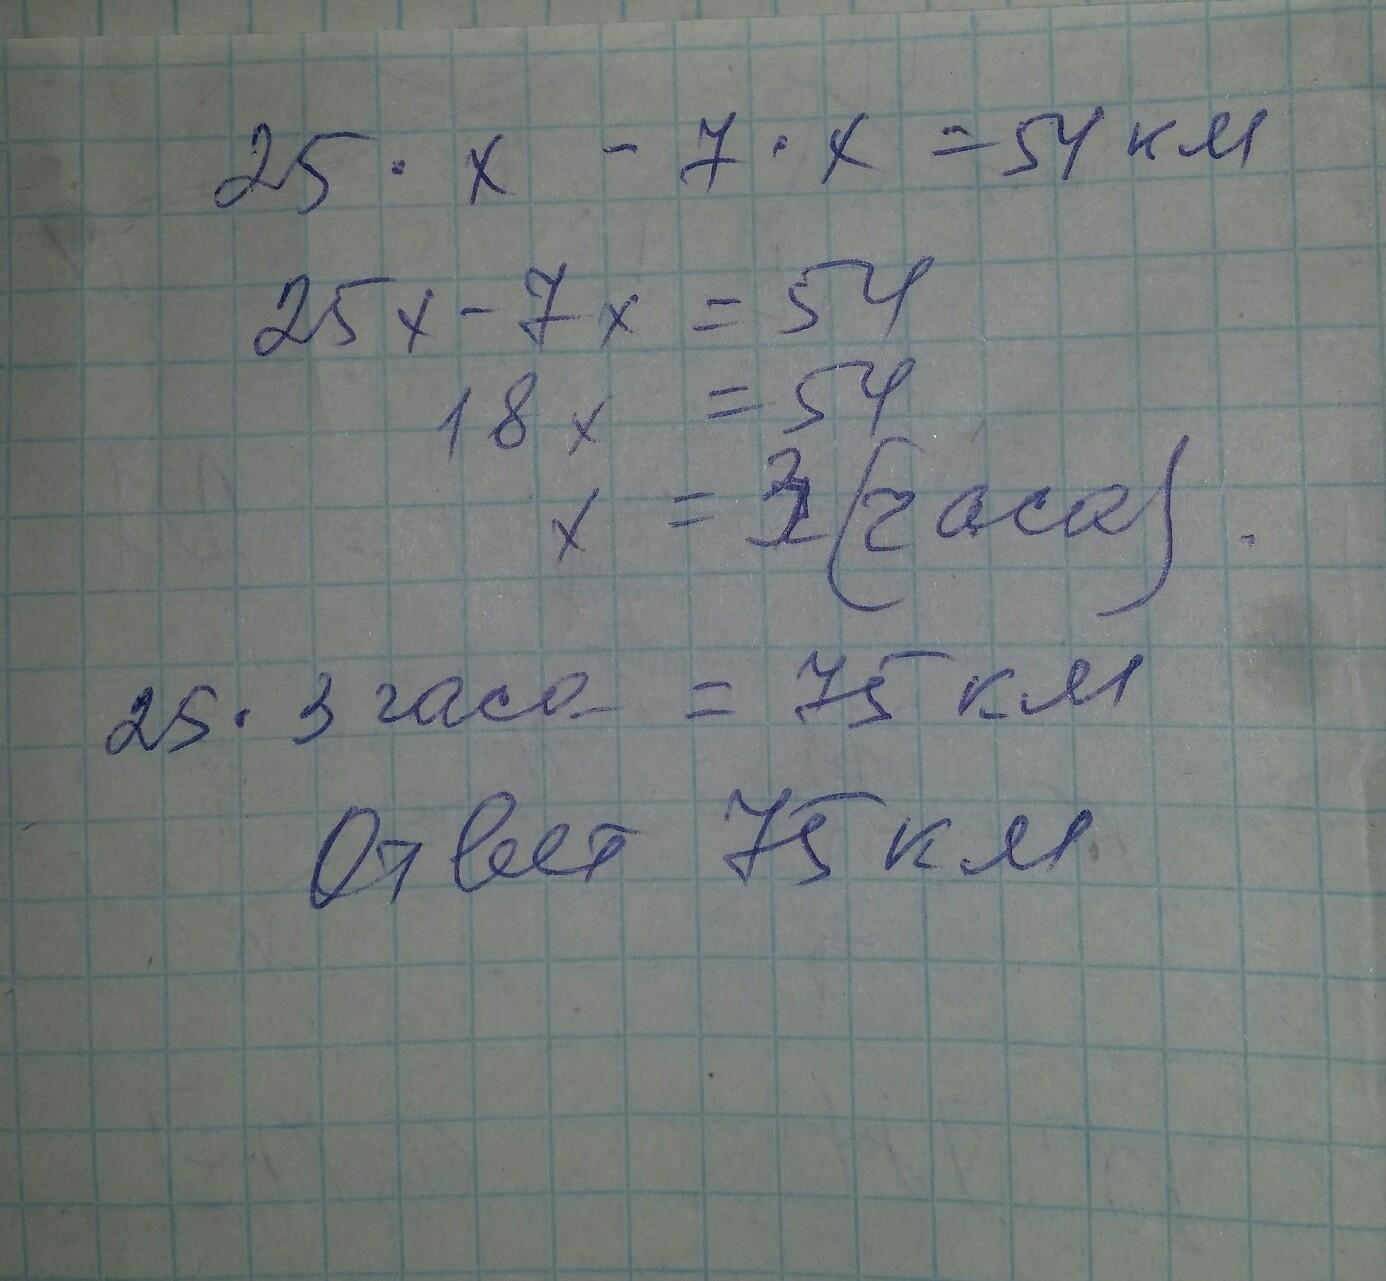 25 · x - 7 · x = 54 км
25x - 7x = 54
18x = 54
x = 3 (часа).
25 · 3 часа = 75 км
Ответ 75 км